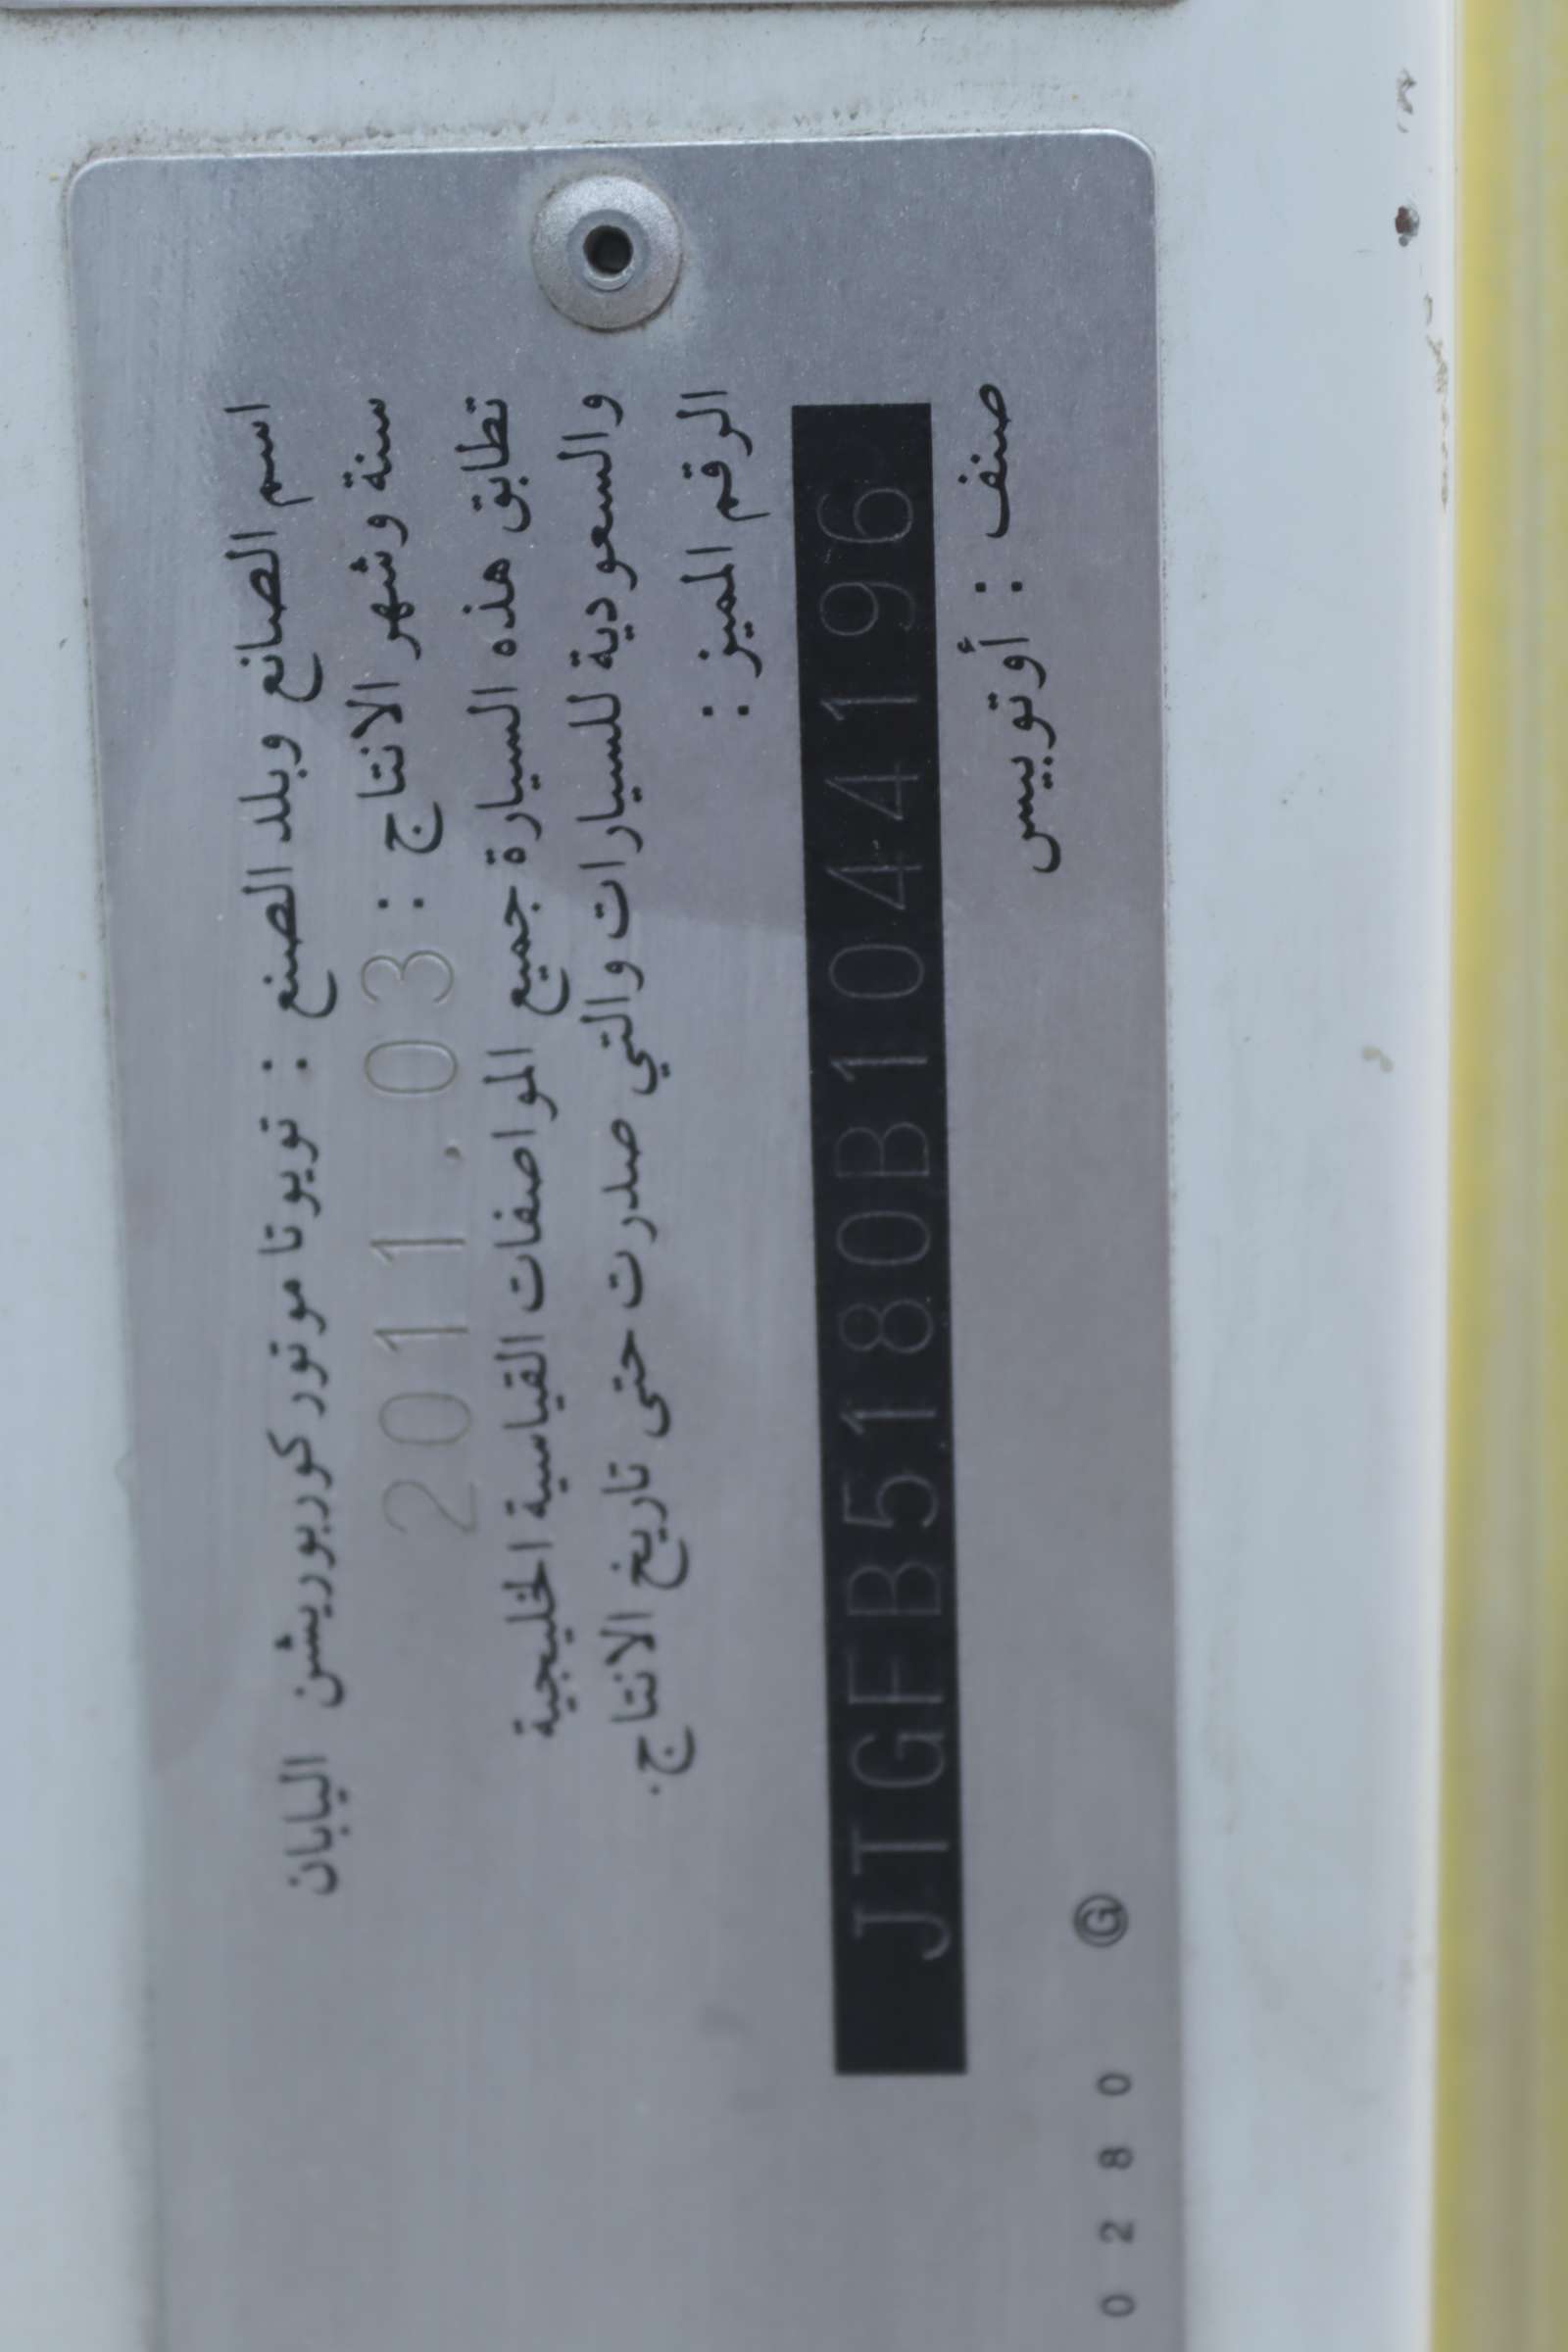 اسم الصانع وبلد الصنع : تويوتا موتور كوربوريشن اليابان
سنة وشهر الانتاج : 2011.03
تطابق هذه السيارة جميع المواصفات القياسية الخليجية
والسعودية للسيارات والتي صدرت حتى تاريخ الانتاج.
الرقم المميز :
JTGFB5180B1044196
صنف : أوتوبيس
0280 G